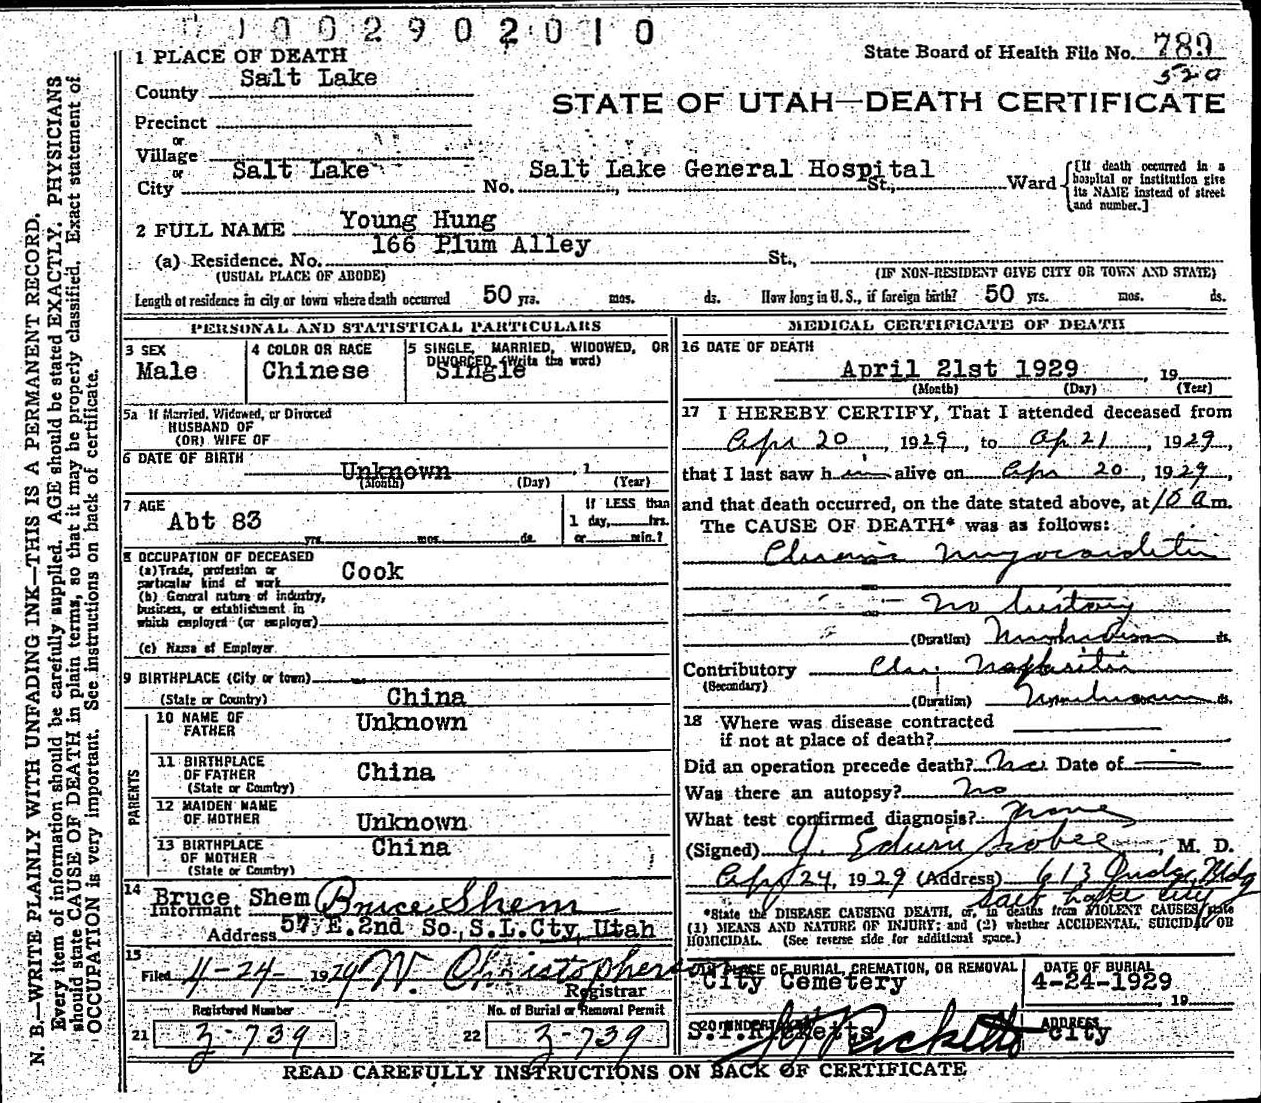 1002902010
State Board of Health File No. 789
520
1 PLACE OF DEATH
County Salt Lake
STATE OF UTAH—DEATH CERTIFICATE
Precinct
or
Village
or
City Salt Lake No. Salt Lake General Hospital St., Ward
[If death occurred in a hospital or institution give its NAME instead of street and number.]
2 FULL NAME Young Hung
(a) Residence. No. 166 Plum Alley St.,
(USUAL PLACE OF ABODE) (IF NON-RESIDENT GIVE CITY OR TOWN AND STATE)
Length of residence in city or town where death occurred 50 yrs. mos. ds. How long in U.S., if foreign birth? 50 yrs. mos. ds.
PERSONAL AND STATISTICAL PARTICULARS
3 SEX
Male
4 COLOR OR RACE
Chinese
5 SINGLE, MARRIED, WIDOWED, OR DIVORCED (Write the word)
Single
5a If Married, Widowed, or Divorced
HUSBAND OF
(OR) WIFE OF
6 DATE OF BIRTH
Unknown , 1
(Month) (Day) (Year)
7 AGE
Abt 83
yrs. mos. ds.
If LESS than
1 day, hrs.
or min.?
8 OCCUPATION OF DECEASED
(a) Trade, profession or
particular kind of work Cook
(b) General nature of industry,
business, or establishment in
which employed (or employer)
(c) Name of Employer
9 BIRTHPLACE (City or town)
(State or Country) China
PARENTS
10 NAME OF FATHER Unknown
11 BIRTHPLACE OF FATHER China
(State or Country)
12 MAIDEN NAME OF MOTHER Unknown
13 BIRTHPLACE OF MOTHER China
(State or Country)
14 Bruce Shem Bruce Shem
Informant
Address 57 E.2nd So.,S.L.Cty, Utah
15
Filed 4-24- 1929 W. Christopherson
Registrar
Registered Number
21 3-739
No. of Burial or Removal Permit
22 3-739
MEDICAL CERTIFICATE OF DEATH
16 DATE OF DEATH
April 21st 1929 , 19
(Month) (Day) (Year)
17 I HEREBY CERTIFY, That I attended deceased from
Apr 20, 1929, to Ap 21, 1929
that I last saw him alive on Apr 20, 1929,
and that death occurred, on the date stated above, at 10 a m.
The CAUSE OF DEATH* was as follows:
Chronic Myocarditis
No history
(Duration) Unknown ds.
Contributory Chr. Nephritis
(Secondary)
(Duration) Unknown ds.
18 Where was disease contracted
if not at place of death?
Did an operation precede death? No Date of
Was there an autopsy? No
What test confirmed diagnosis? None
(Signed) J. Edwin , M. D.
Apr 24, 1929 (Address) 613 Judge Bldg
Salt Lake City
*State the DISEASE CAUSING DEATH, or, in deaths from VIOLENT CAUSES, state
(1) MEANS AND NATURE OF INJURY; and (2) whether ACCIDENTAL, SUICIDAL OR
HOMICIDAL. (See reverse side for additional space.)
PLACE OF BURIAL, CREMATION, OR REMOVAL
City Cemetery
DATE OF BURIAL
4-24-1929
, 19
20 UNDERTAKER
S.T.Ricketts Ricketts
ADDRESS
City
READ CAREFULLY INSTRUCTIONS ON BACK OF CERTIFICATE
N. B.—WRITE PLAINLY WITH UNFADING INK—THIS IS A PERMANENT RECORD.
Every item of information should be carefully supplied. AGE should be stated EXACTLY. PHYSICIANS
should state CAUSE OF DEATH in plain terms, so that it may be properly classified. Exact statement of
OCCUPATION is very important. See instructions on back of certificate.